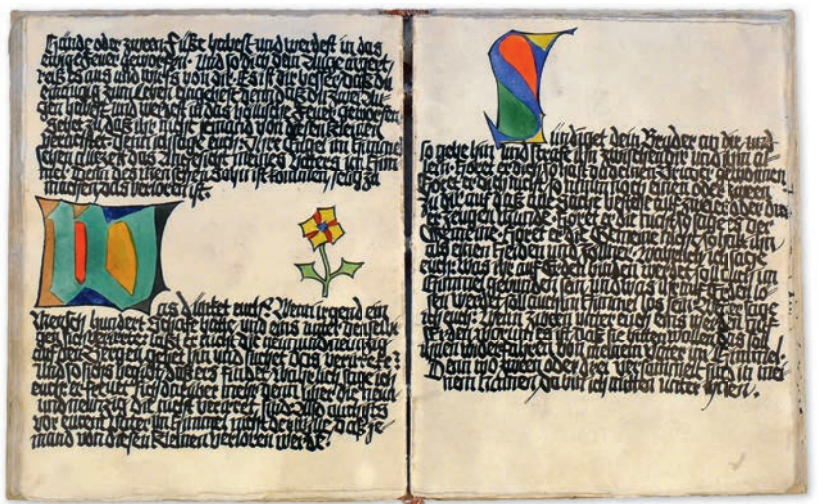 Hände oder zween Füße habest und werdest in das
ewige Feuer geworfen. Und so dich dein Auge ärgert
reiß es aus und wirfs von dir. Es ist dir besser/daß du
einäugig zum Leben eingehest denn daß du zwei Au-
gen habest und werdest in das höllische Feuer geworfen
Sehet zu daß ihr nicht jemand von diesen Kleinen
verachtet. denn ich sage euch: Ihre Engel im Himmel
sehen allezeit das Angesicht meines Vaters im Him
mel. Denn des menschen Sohn ist kommen, selig zu
machen, das verloren ist.
Was dünket euch? Wenn irgend ein
Mensch hundert Schafe hätte und eins unter denselbi
gen sich verirrete: läßt er nicht die neunundneunzig
auf den Bergen gehet hin und suchet das verirrete?
Und so sichs begibt daß ers findet. Wahrlich sage ich
euch: er freuet sich darüber mehr denn über die neun
undneunzig die nicht verirret sind. Also auch ists
vor eurem Vater im Himmel nicht der wille daß je
mand von diesen Kleinen verloren werde.
Sündiget dein Bruder an dir
so gehe hin und strafe ihn zwischen dir und ihm al-
lein. Höret er dich so hast du deinen Bruder gewonnen
Höret er dich nicht, so nimm noch einen oder zween
zu dir auf daß alle Sache bestehe auf zweier oder drei
er Zeugen Munde. Höret er die nicht so sage es der
Gemeine. Höret er die Gemeine nicht so halt ihn
als einen Heiden und Zöllner. Wahrlich ich sage
euch: was ihr auf Erden binden werdet soll auch im
Himmel gebunden sein und was ihr auf Erden lö-
sen werdet soll auch im Himmel los sein. Weiter sage
ich euch: Wenn zween unter euch eins werden auf
Erden warum es ist daß sie bitten wollen das soll
ihnen widerfahren von meinem Vater im Himmel.
Denn wo zween oder drei versammelt sind in mei
nem Namen, da bin ich mitten unter ihnen.